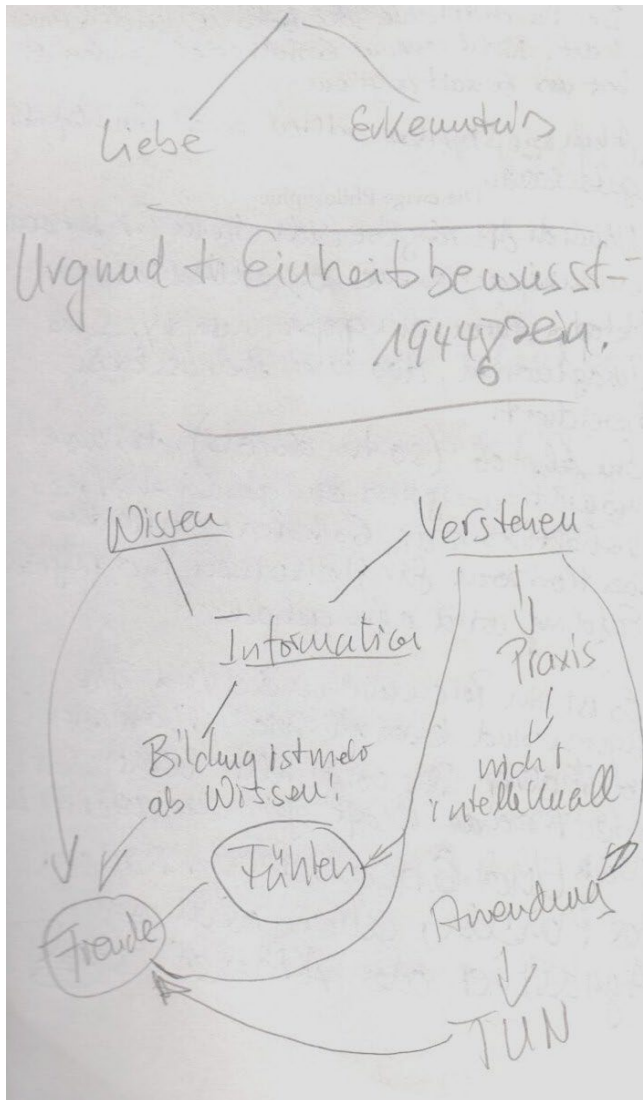 Liebe
Erkenntnis
Urgrund + Einheitsbewusst-
sein.
1944
6
Wissen
Verstehen
Information
Praxis
Bildung ist mehr
als Wissen!
nicht
intellektuell
Fühlen
Freude
Anwendung
TUN